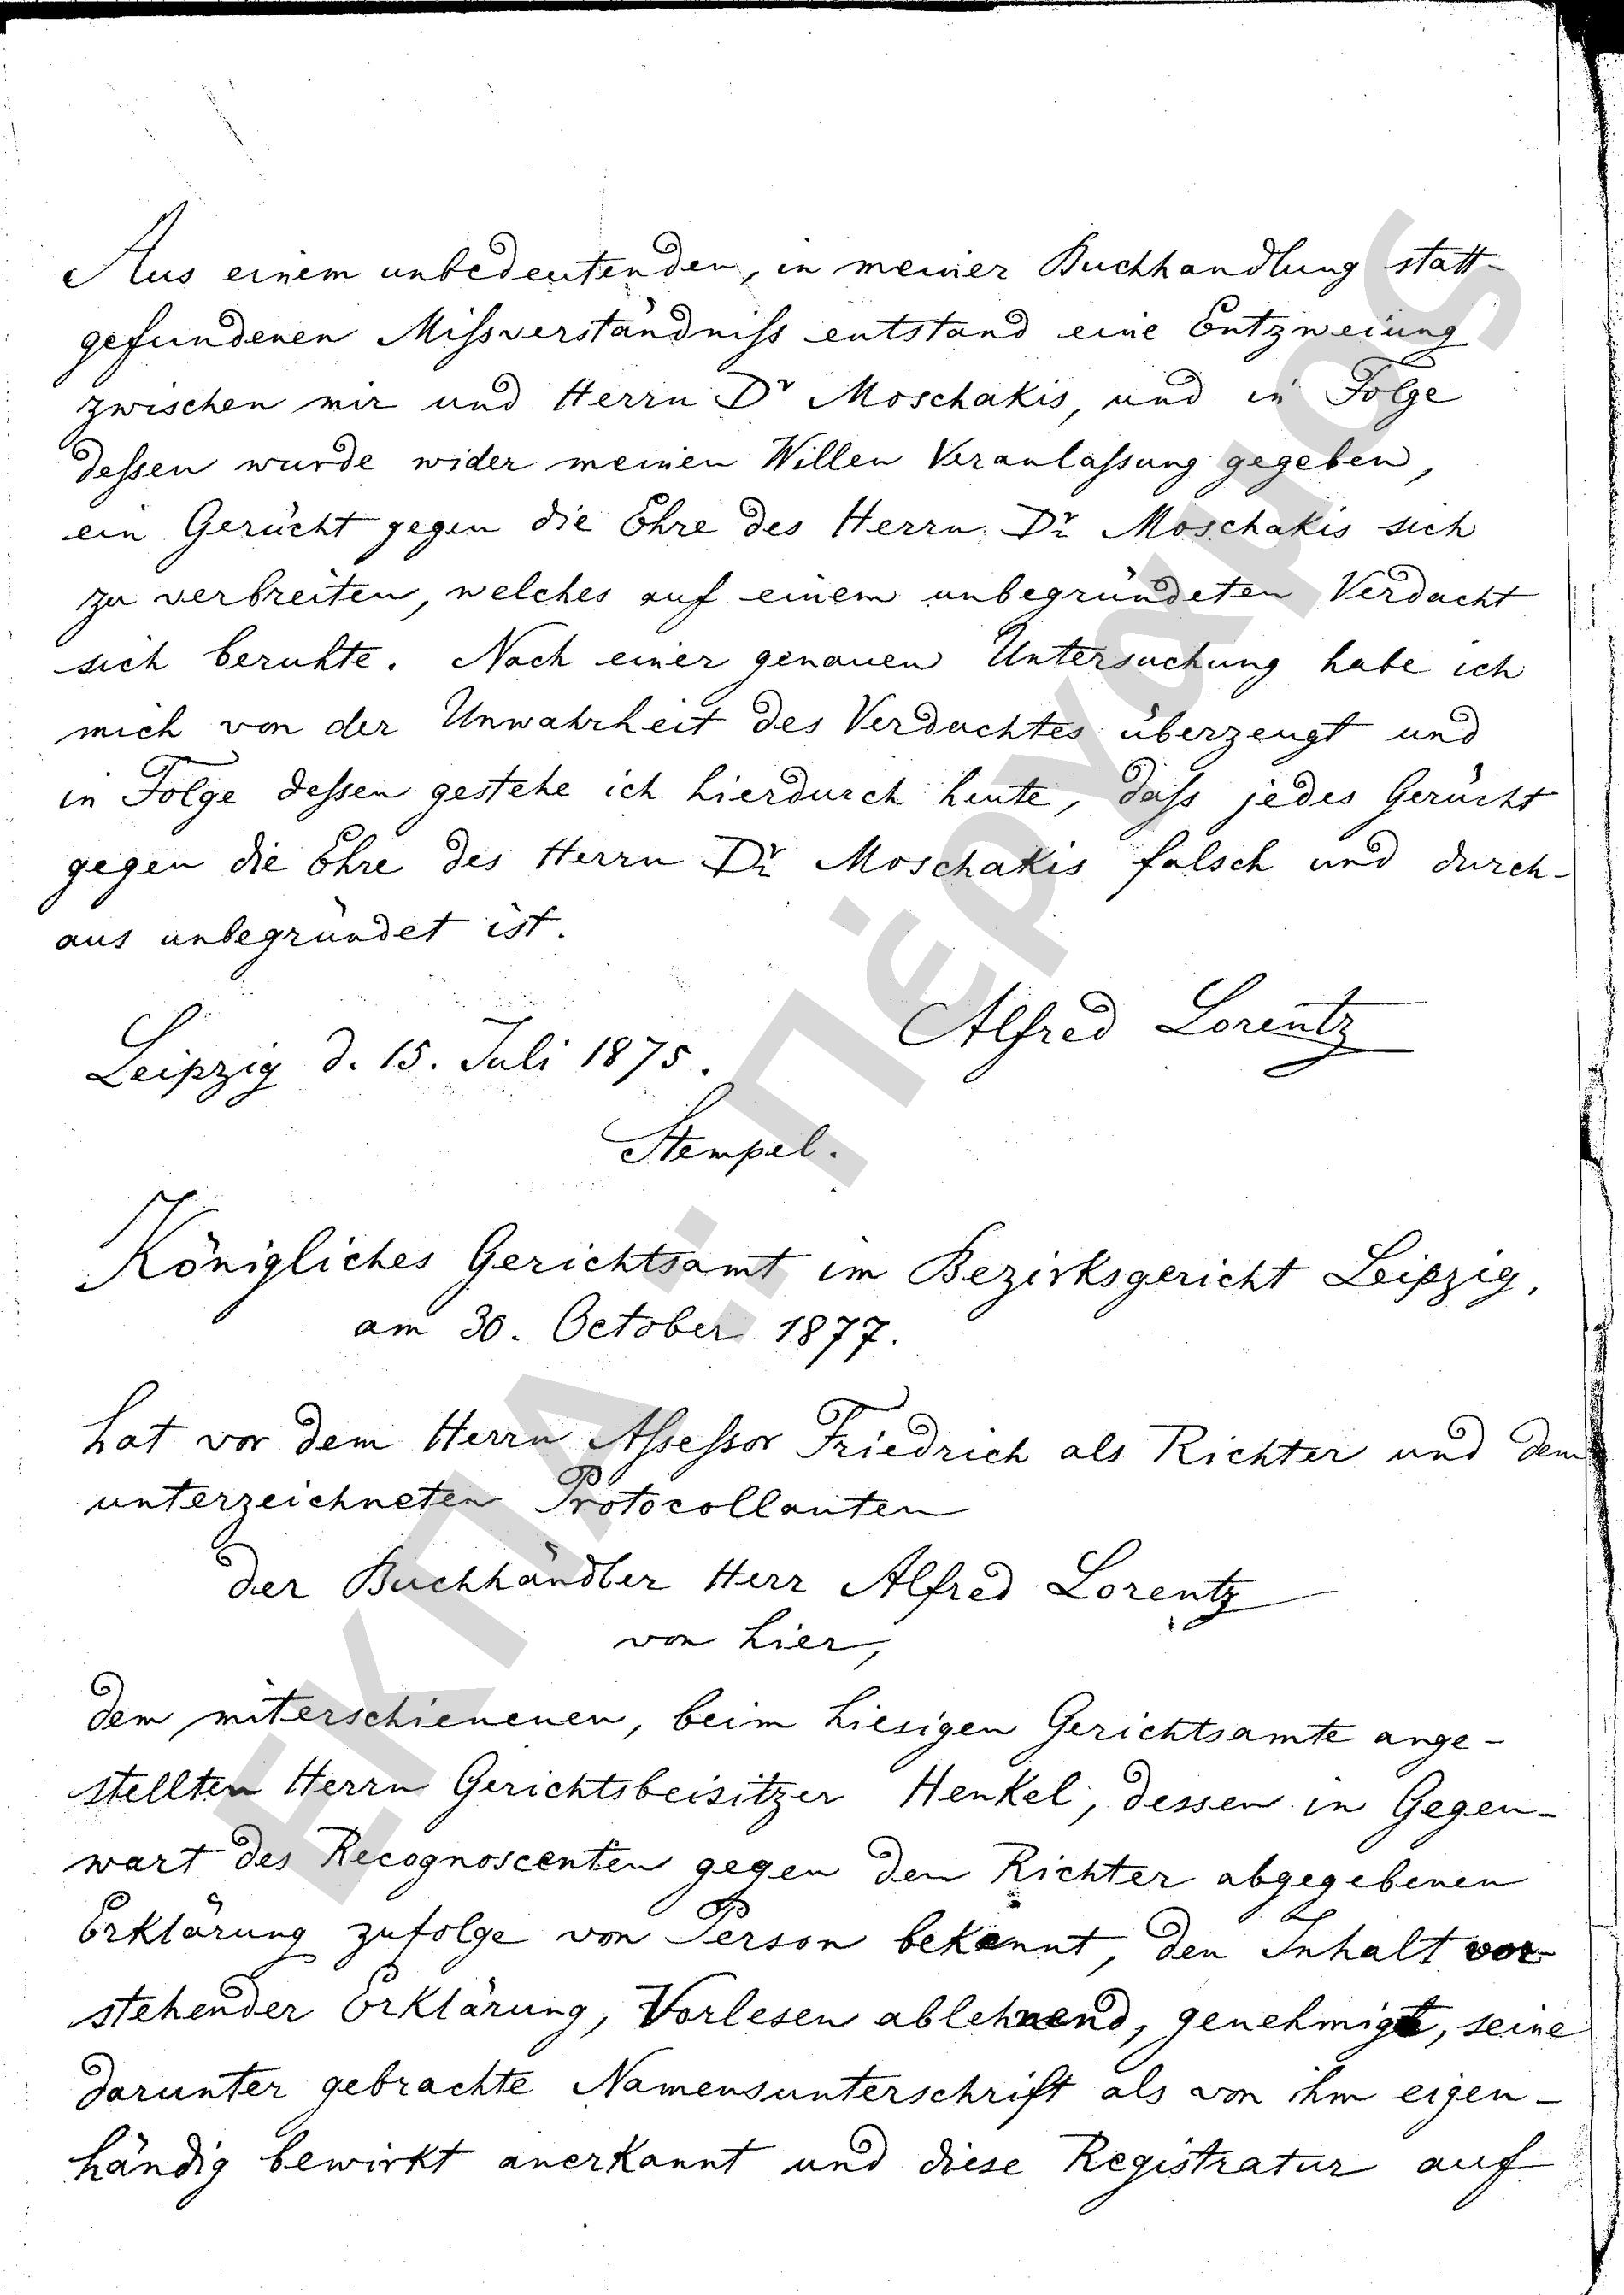 Aus einem unbedeutenden, in meiner Buchhandlung statt-
gefundenen Missverständniss entstand eine Entzweiung
zwischen mir und Herrn Dr Moschakis, und in Folge
dessen wurde wider meinen Willen Veranlassung gegeben,
ein Gerücht gegen die Ehre des Herrn Dr Moschakis sich
zu verbreiten, welches auf einem unbegründeten Verdacht
sich beruhte. Nach einer genauen Untersuchung habe ich
mich von der Unwahrheit des Verdachtes überzeugt und
in Folge dessen gestehe ich hierdurch heute, dass jedes Gerücht
gegen die Ehre des Herrn Dr Moschakis falsch und durch-
aus unbegründet ist.
Alfred Lorentz
Leipzig d. 15. Juli 1875.
Stempel.
Königliches Gerichtsamt im Bezirksgericht Leipzig,
am 30. October 1877.
hat vor dem Herrn Assessor Friedrich als Richter und dem
unterzeichneten Protocollanten
der Buchhändler Herr Alfred Lorentz
von hier,
dem miterschienenen, beim hiesigen Gerichtsamte ange-
stellten Herrn Gerichtsbeisitzer Henkel, dessen in Gegen-
wart des Recognoscenten gegen den Richter abgegebenen
Erklärung zufolge von Person bekannt, den Inhalt vor-
stehender Erklärung, Vorlesen ablehnend, genehmigt, seine
darunter gebrachte Namensunterschrift als von ihm eigen-
händig bewirkt anerkannt und diese Registratur auf
ΕΚΠΑ - Πέργαμος